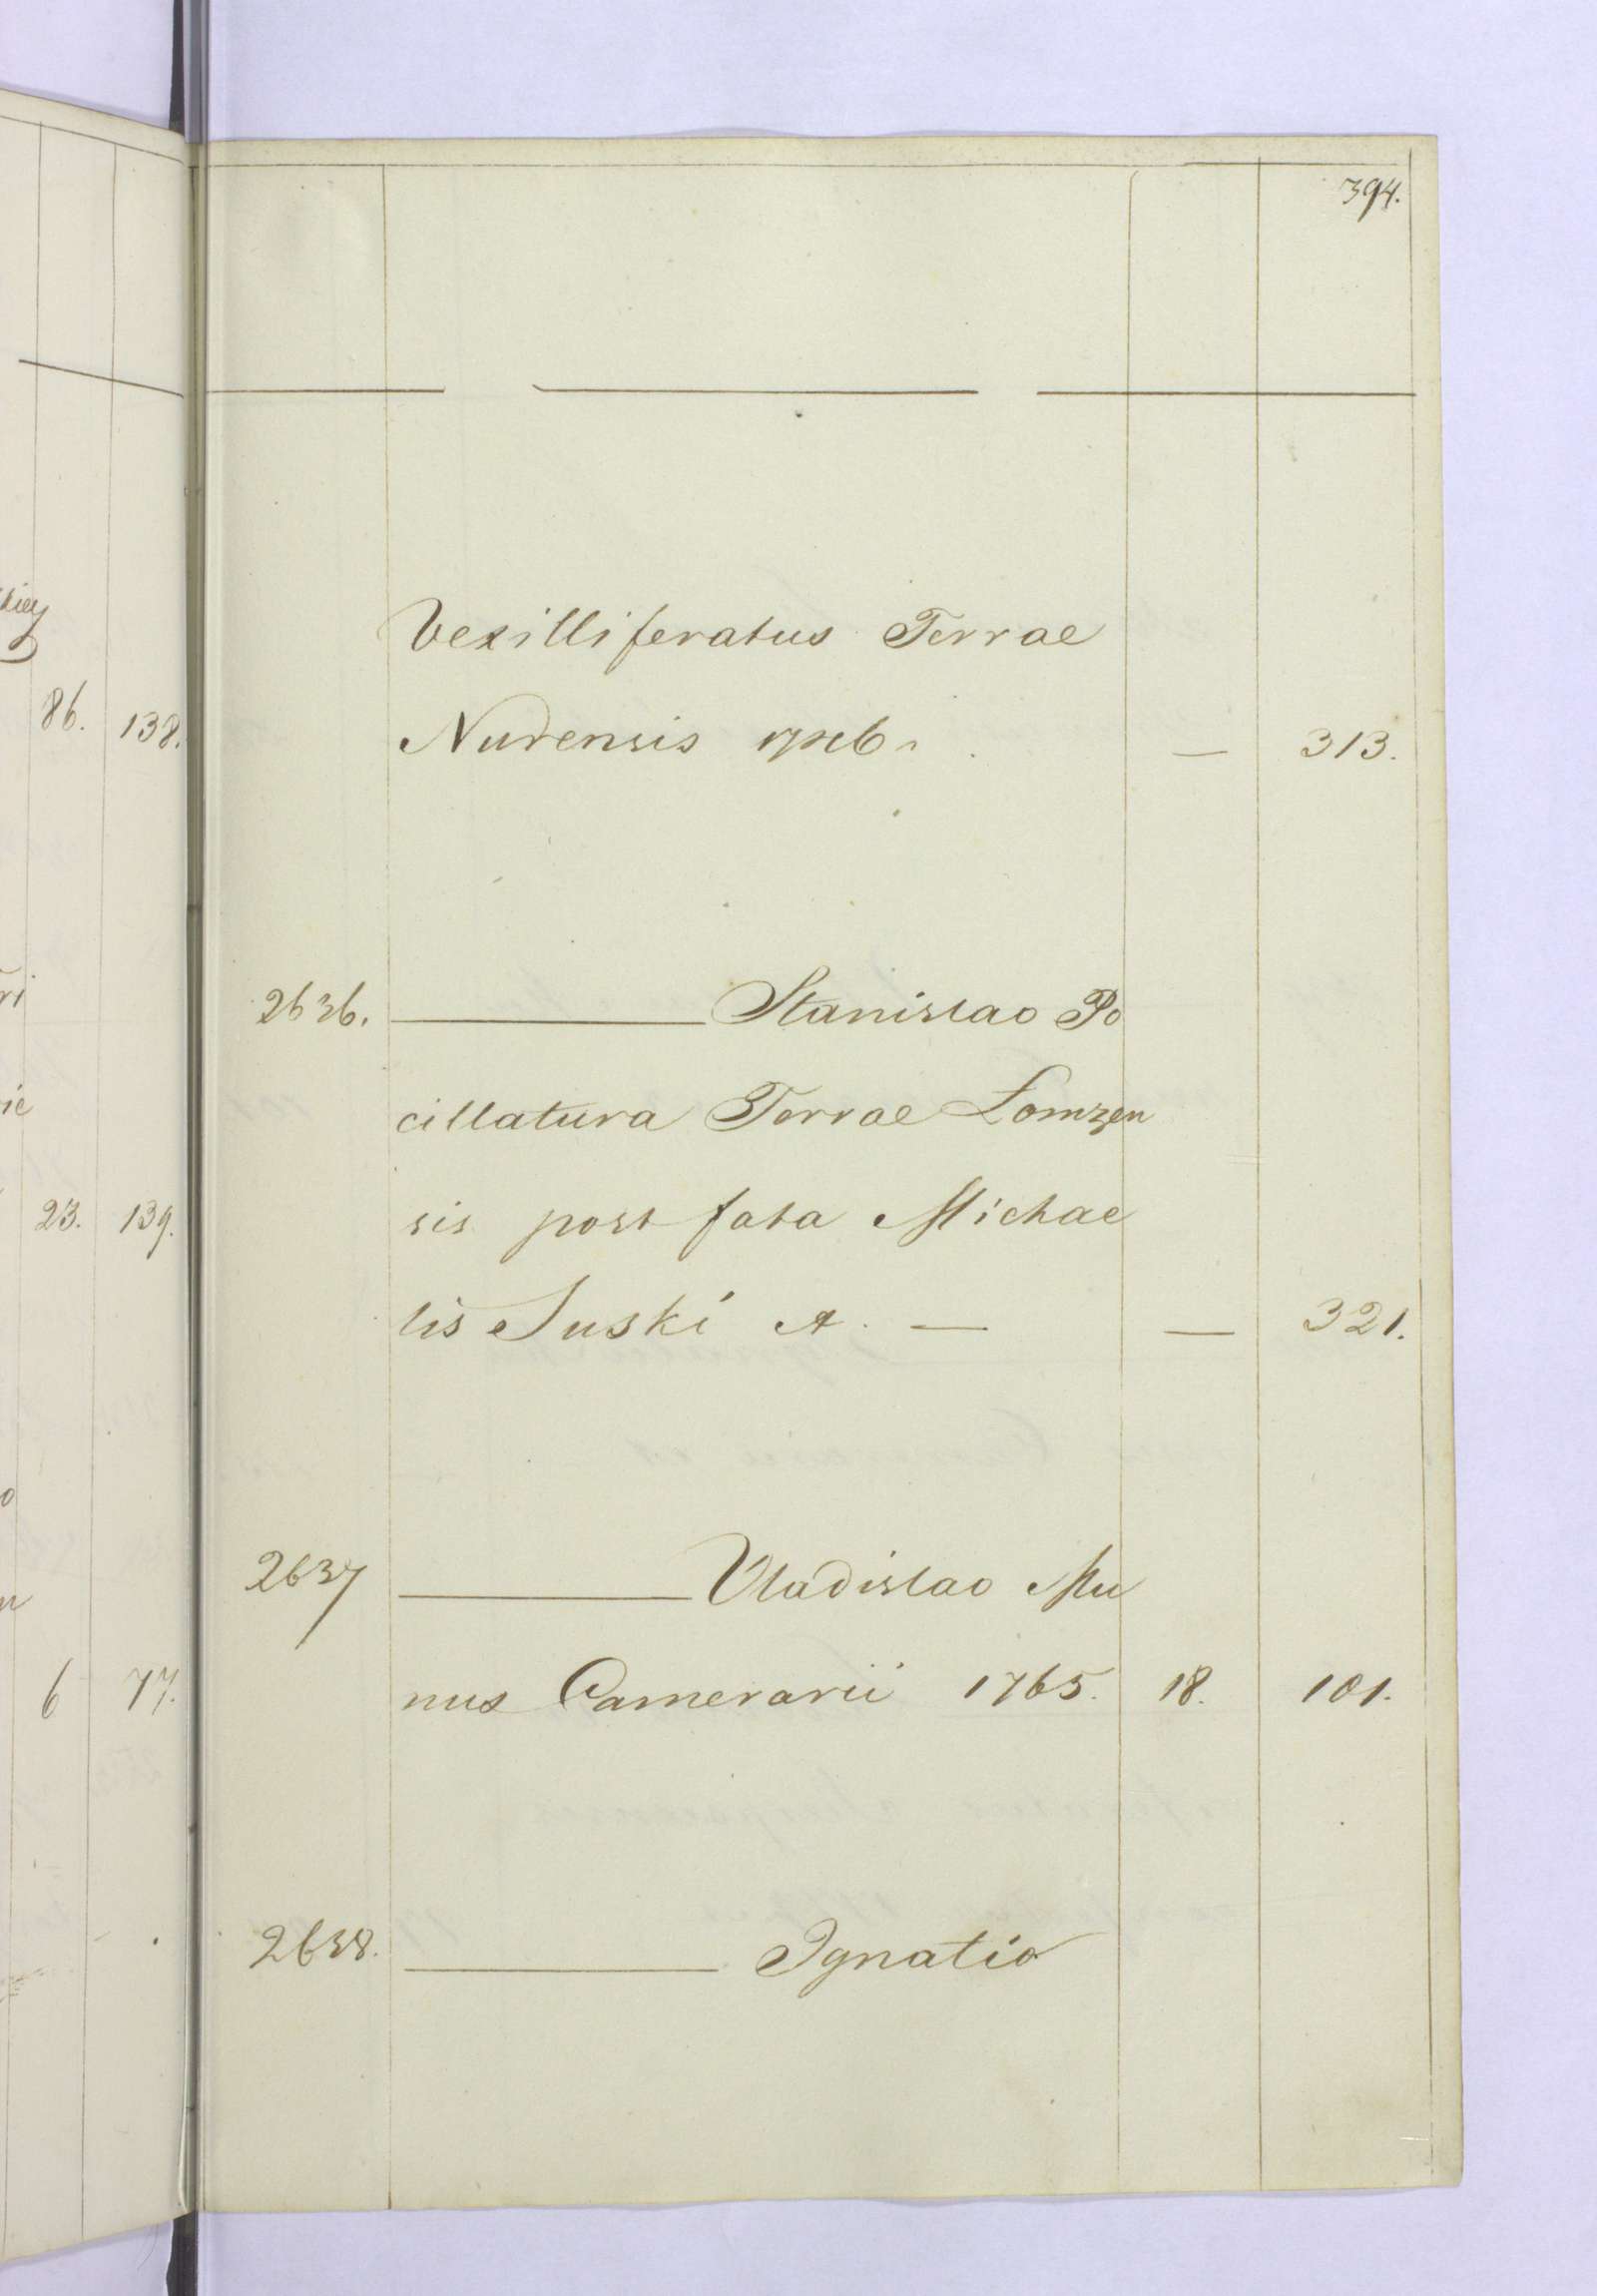 394.
Vexilliferatus Terrae
Nurensis — 313.
2636. ——— Stanislao Po
cillatura Terrae Łomzen
sis post fata Michae
lis Suski A. — — 321.
2637 ——— Vladislao Mu
nus Camerarii 1765. 18. 101.
2638. ——— Ignatio
86. 138.
23. 139.
6 77.